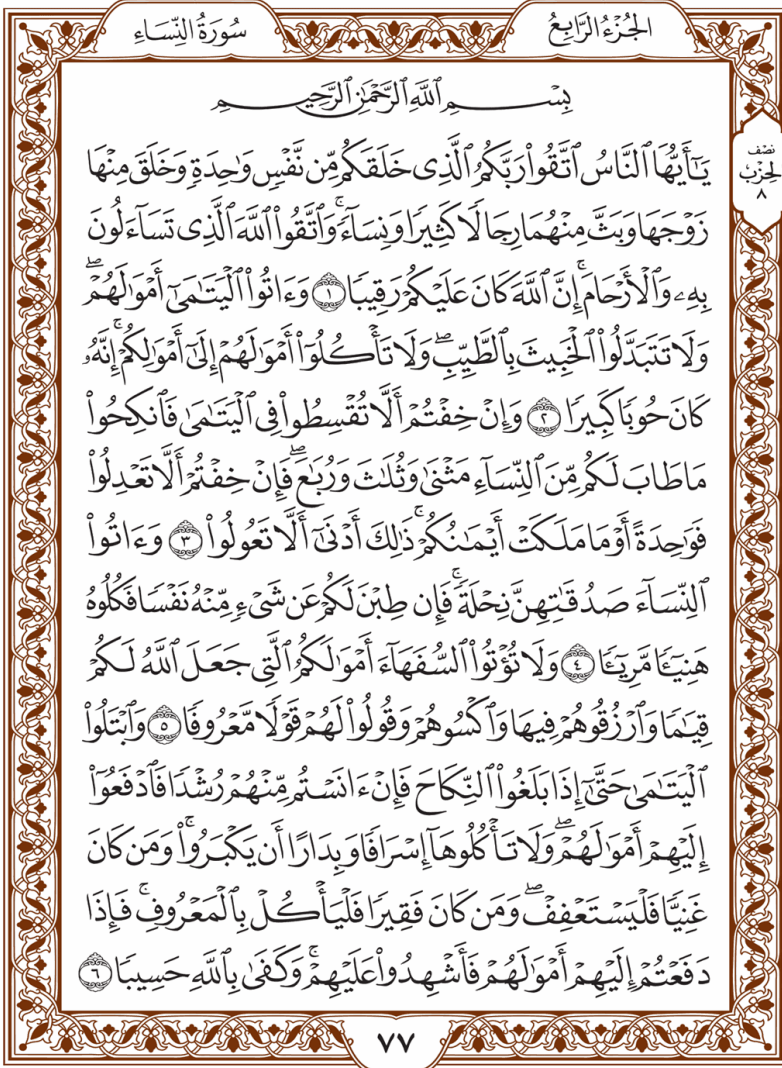 الجُزْءُ الرَّابِعُ
سُورَةُ النِّسَاءِ
بِسْمِ ٱللَّهِ ٱلرَّحْمَٰنِ ٱلرَّحِيمِ
نصف
الحزب
٨
يَـٰٓأَيُّهَا ٱلنَّاسُ ٱتَّقُوا۟ رَبَّكُمُ ٱلَّذِى خَلَقَكُم مِّن نَّفْسٍ وَٰحِدَةٍ وَخَلَقَ مِنْهَا
زَوْجَهَا وَبَثَّ مِنْهُمَا رِجَالًا كَثِيرًا وَنِسَآءً ۚ وَٱتَّقُوا۟ ٱللَّهَ ٱلَّذِى تَسَآءَلُونَ
بِهِۦ وَٱلْأَرْحَامَ ۚ إِنَّ ٱللَّهَ كَانَ عَلَيْكُمْ رَقِيبًا ١ وَءَاتُوا۟ ٱلْيَتَـٰمَىٰٓ أَمْوَٰلَهُمْ ۖ
وَلَا تَتَبَدَّلُوا۟ ٱلْخَبِيثَ بِٱلطَّيِّبِ ۖ وَلَا تَأْكُلُوٓا۟ أَمْوَٰلَهُمْ إِلَىٰٓ أَمْوَٰلِكُمْ ۚ إِنَّهُۥ
كَانَ حُوبًا كَبِيرًا ٢ وَإِنْ خِفْتُمْ أَلَّا تُقْسِطُوا۟ فِى ٱلْيَتَـٰمَىٰ فَٱنكِحُوا۟
مَا طَابَ لَكُم مِّنَ ٱلنِّسَآءِ مَثْنَىٰ وَثُلَـٰثَ وَرُبَـٰعَ ۖ فَإِنْ خِفْتُمْ أَلَّا تَعْدِلُوا۟
فَوَٰحِدَةً أَوْ مَا مَلَكَتْ أَيْمَـٰنُكُمْ ۚ ذَٰلِكَ أَدْنَىٰٓ أَلَّا تَعُولُوا۟ ٣ وَءَاتُوا۟
ٱلنِّسَآءَ صَدُقَـٰتِهِنَّ نِحْلَةً ۚ فَإِن طِبْنَ لَكُمْ عَن شَىْءٍ مِّنْهُ نَفْسًا فَكُلُوهُ
هَنِيٓـًٔا مَّرِيٓـًٔا ٤ وَلَا تُؤْتُوا۟ ٱلسُّفَهَآءَ أَمْوَٰلَكُمُ ٱلَّتِى جَعَلَ ٱللَّهُ لَكُمْ
قِيَـٰمًا وَٱرْزُقُوهُمْ فِيهَا وَٱكْسُوهُمْ وَقُولُوا۟ لَهُمْ قَوْلًا مَّعْرُوفًا ٥ وَٱبْتَلُوا۟
ٱلْيَتَـٰمَىٰ حَتَّىٰٓ إِذَا بَلَغُوا۟ ٱلنِّكَاحَ فَإِنْ ءَانَسْتُم مِّنْهُمْ رُشْدًا فَٱدْفَعُوٓا۟
إِلَيْهِمْ أَمْوَٰلَهُمْ ۖ وَلَا تَأْكُلُوهَآ إِسْرَافًا وَبِدَارًا أَن يَكْبَرُوا۟ ۚ وَمَن كَانَ
غَنِيًّا فَلْيَسْتَعْفِفْ ۖ وَمَن كَانَ فَقِيرًا فَلْيَأْكُلْ بِٱلْمَعْرُوفِ ۚ فَإِذَا
دَفَعْتُمْ إِلَيْهِمْ أَمْوَٰلَهُمْ فَأَشْهِدُوا۟ عَلَيْهِمْ ۚ وَكَفَىٰ بِٱللَّهِ حَسِيبًا ٦
٧٧